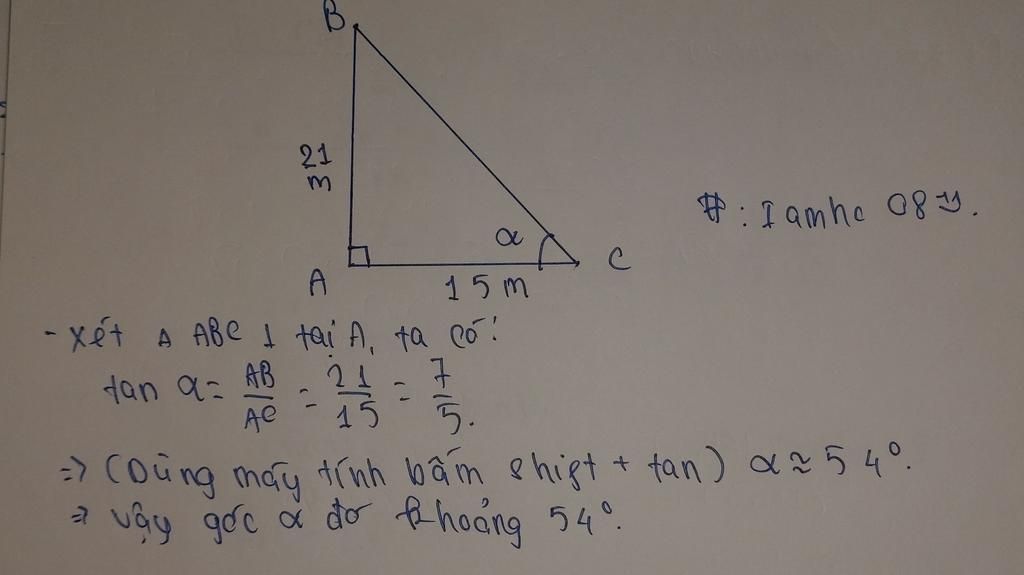 B
21
m
α
A
15 m
C
#: I amhc 08
- Xét Δ ABC ⊥ tại A, ta có:
tan α = AB/AC = 21/15 = 7/5.
=> (Dùng máy tính bấm shift + tan) α ≈ 54°.
=> Vậy góc α đo khoảng 54°.